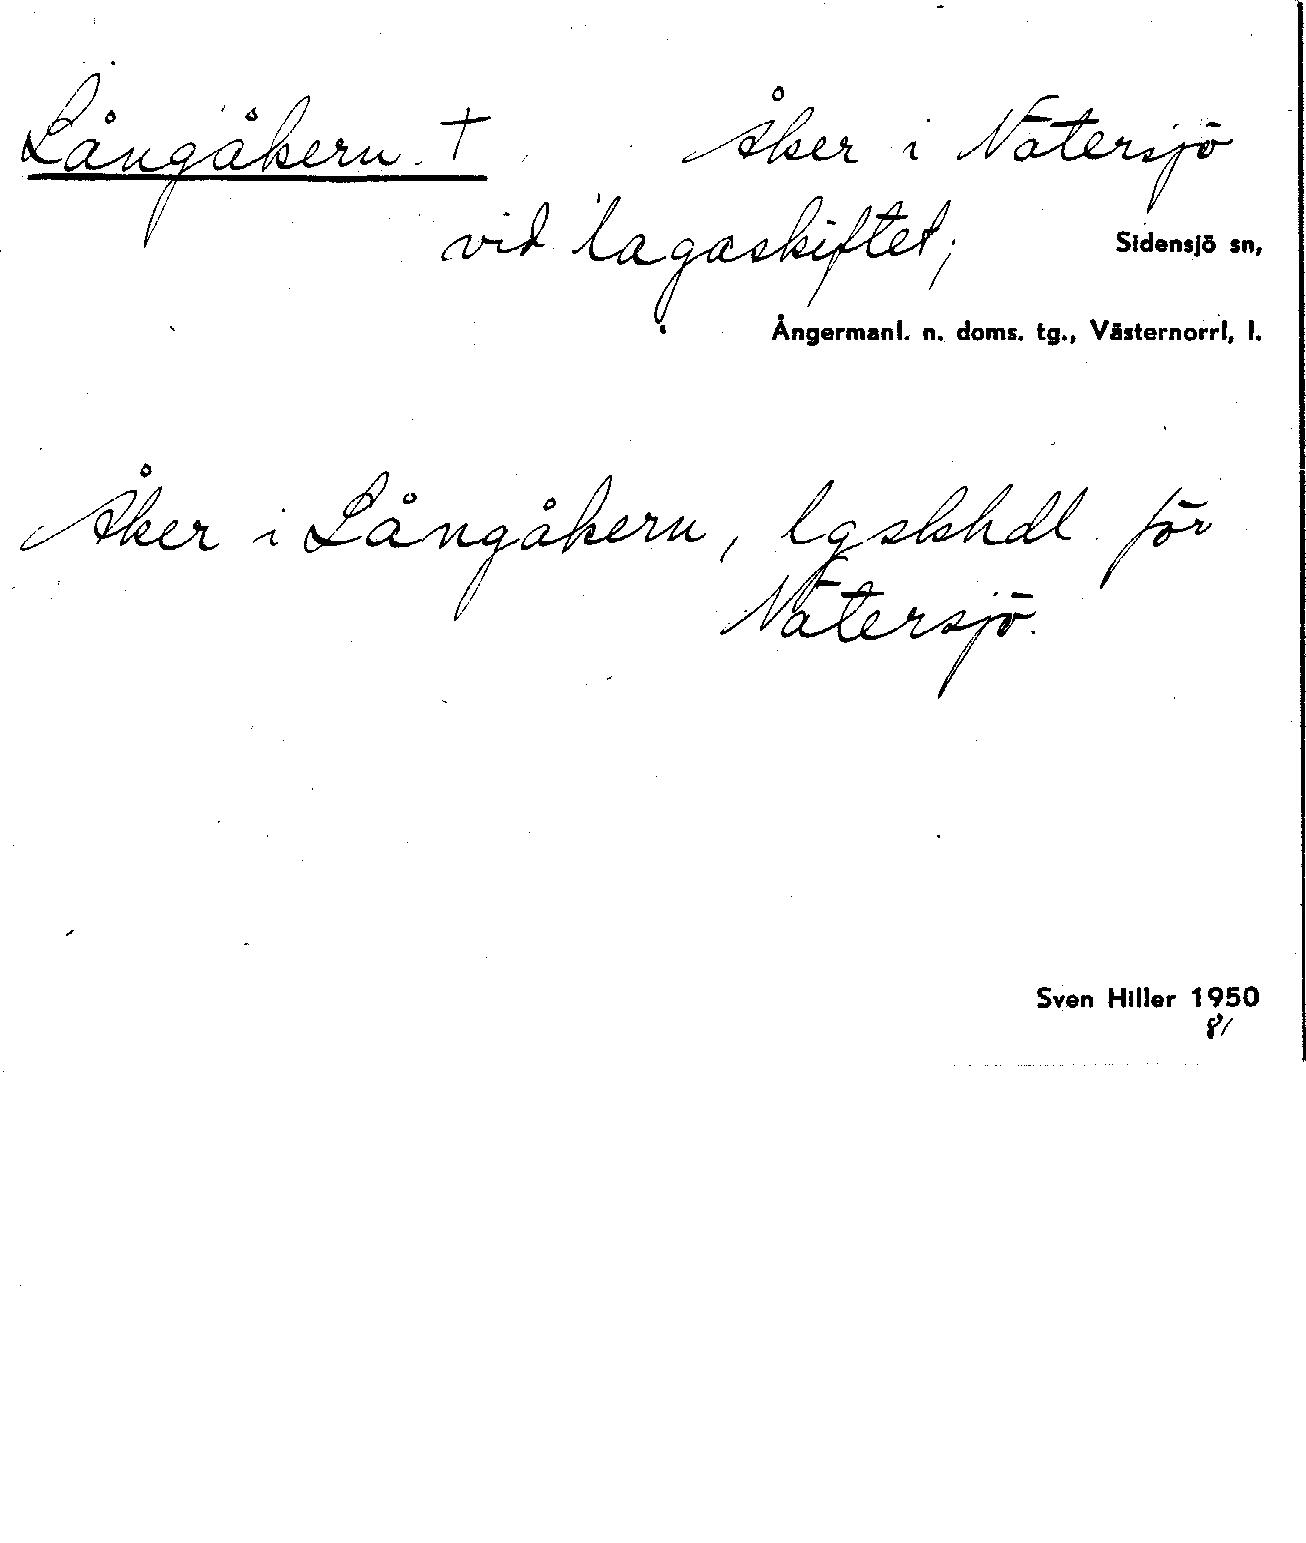 Långåkern † Åker i Nätersjö
vid lagaskiftet; Sidensjö sn,
Ångermanl. n. doms. tg., Västernorrl, l.
Åker i Långåkern, lgskhdl för
Nätersjö.
Sven Hiller 1950
81